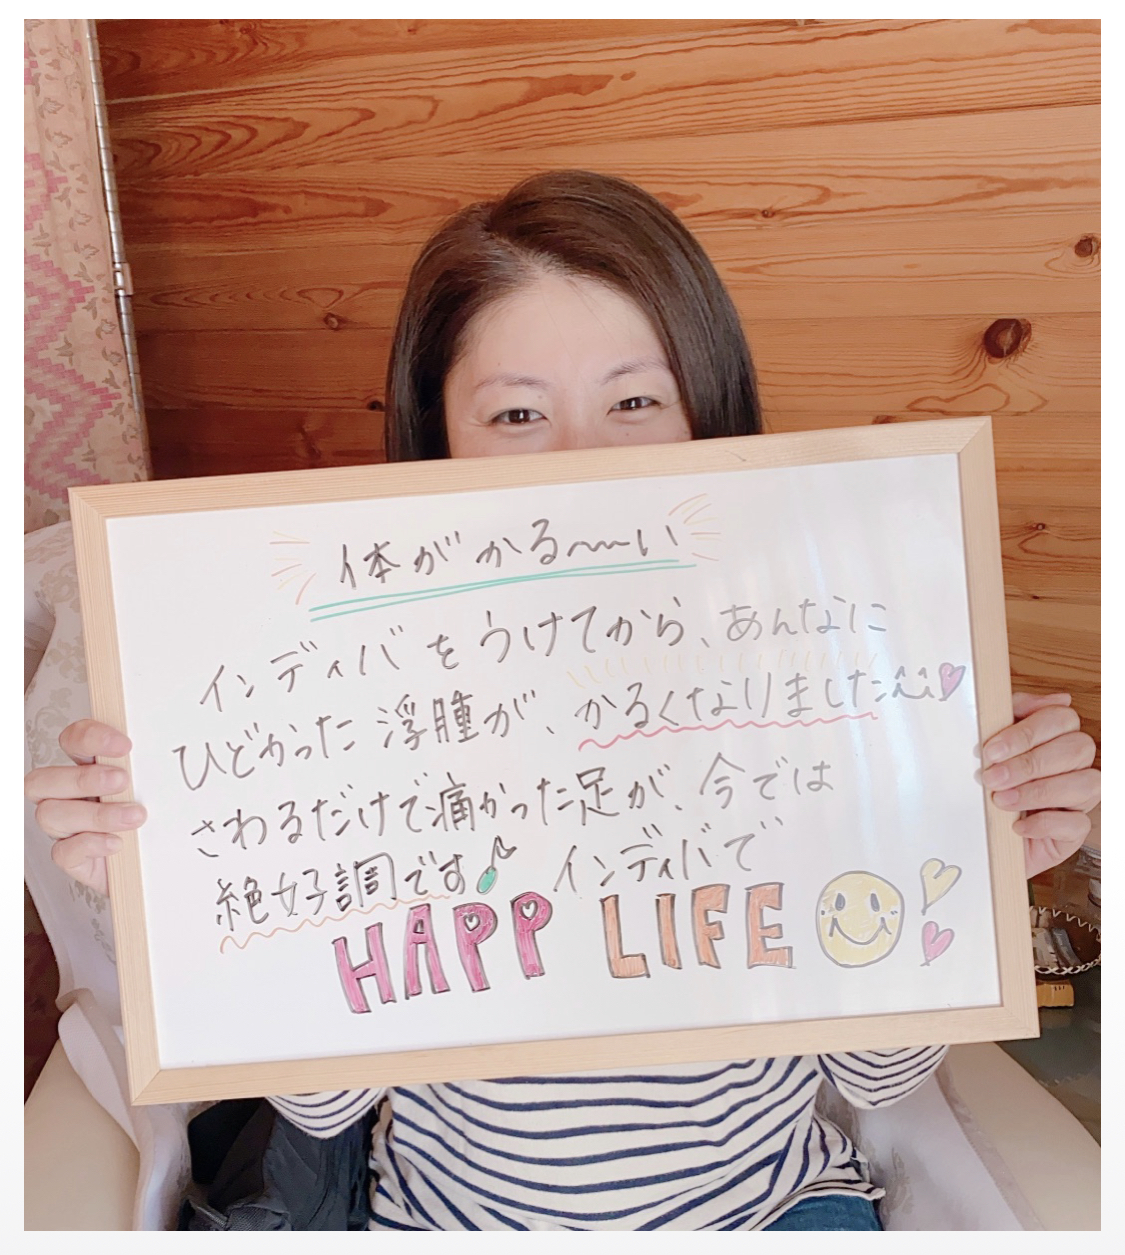 体がかる〜〜い
インディバをうけてから、あんなに
ひどかった浮腫が、かるくなりました^^
さわるだけで痛かった足が、今では
絶好調です♪ インディバで
HAPP LIFE